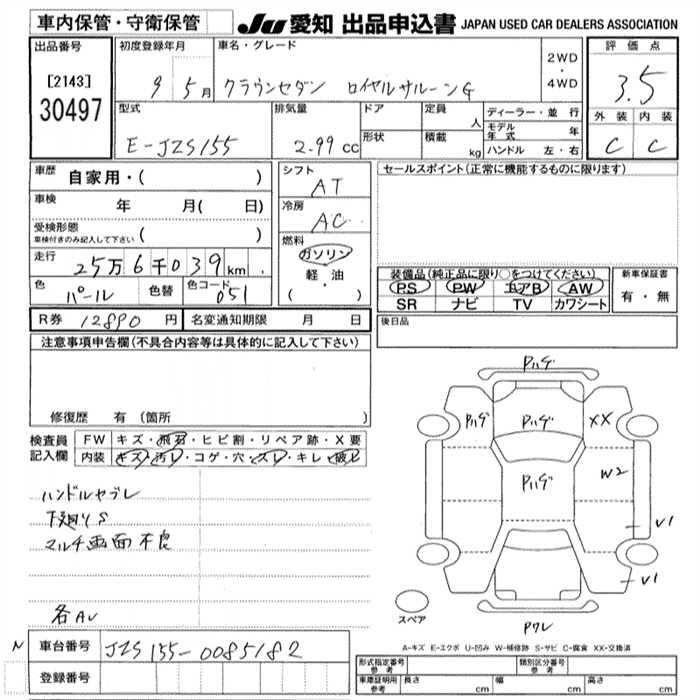 車内保管・守衛保管
JU 愛知 出品申込書 JAPAN USED CAR DEALERS ASSOCIATION
出品番号
[2143]
30497
初度登録年月
9 5月
車名・グレード
クラウンセダン ロイヤルサルーンG
2WD
・
4WD
評価点
3.5
外装 内装
C C
型式
E-JZS155
排気量
2.99 cc
ドア
形状
定員
人
積載
kg
ディーラー・並行
モデル年式 年
ハンドル 左・右
車歴 自家用・( )
車検 年 月( 日)
受検形態
車検付きのみ記入して下さい ( )
走行 25万6千039km
色 パール 色替 色コード 051
シフト
AT
冷房
AC
燃料
ガソリン
・
軽・油
・
( )
セールスポイント(正常に機能するものに限ります)
装備品(純正品に限り○をつけてください)
PS PW エアB AW
SR ナビ TV カワシート
新車保証書
有・無
R券 12890 円 名変通知期限 月 日
後日品
注意事項申告欄(不具合内容等は具体的に記入して下さい)
修復歴 有(箇所 )
検査員記入欄
FW キズ・飛石・ヒビ割・リペア跡・X要
内装 キズ・汚レ・コゲ・穴・スレ・キレ・破レ
ハンドルセブレ
下廻りS
マルチ画面不良
各AU
Pハゲ
Pハゲ Pハゲ XX
Pハゲ W2
V1
V1
スペア
Pワレ
A-キズ E-エクボ U-凹み W-補修跡 S-サビ C-腐食 XX-交換済
N 車台番号 JZS155-0085182
登録番号
形式指定番号 参考
類別区分番号 参考
車庫証明用 参考 長さ cm 幅 cm 高さ cm